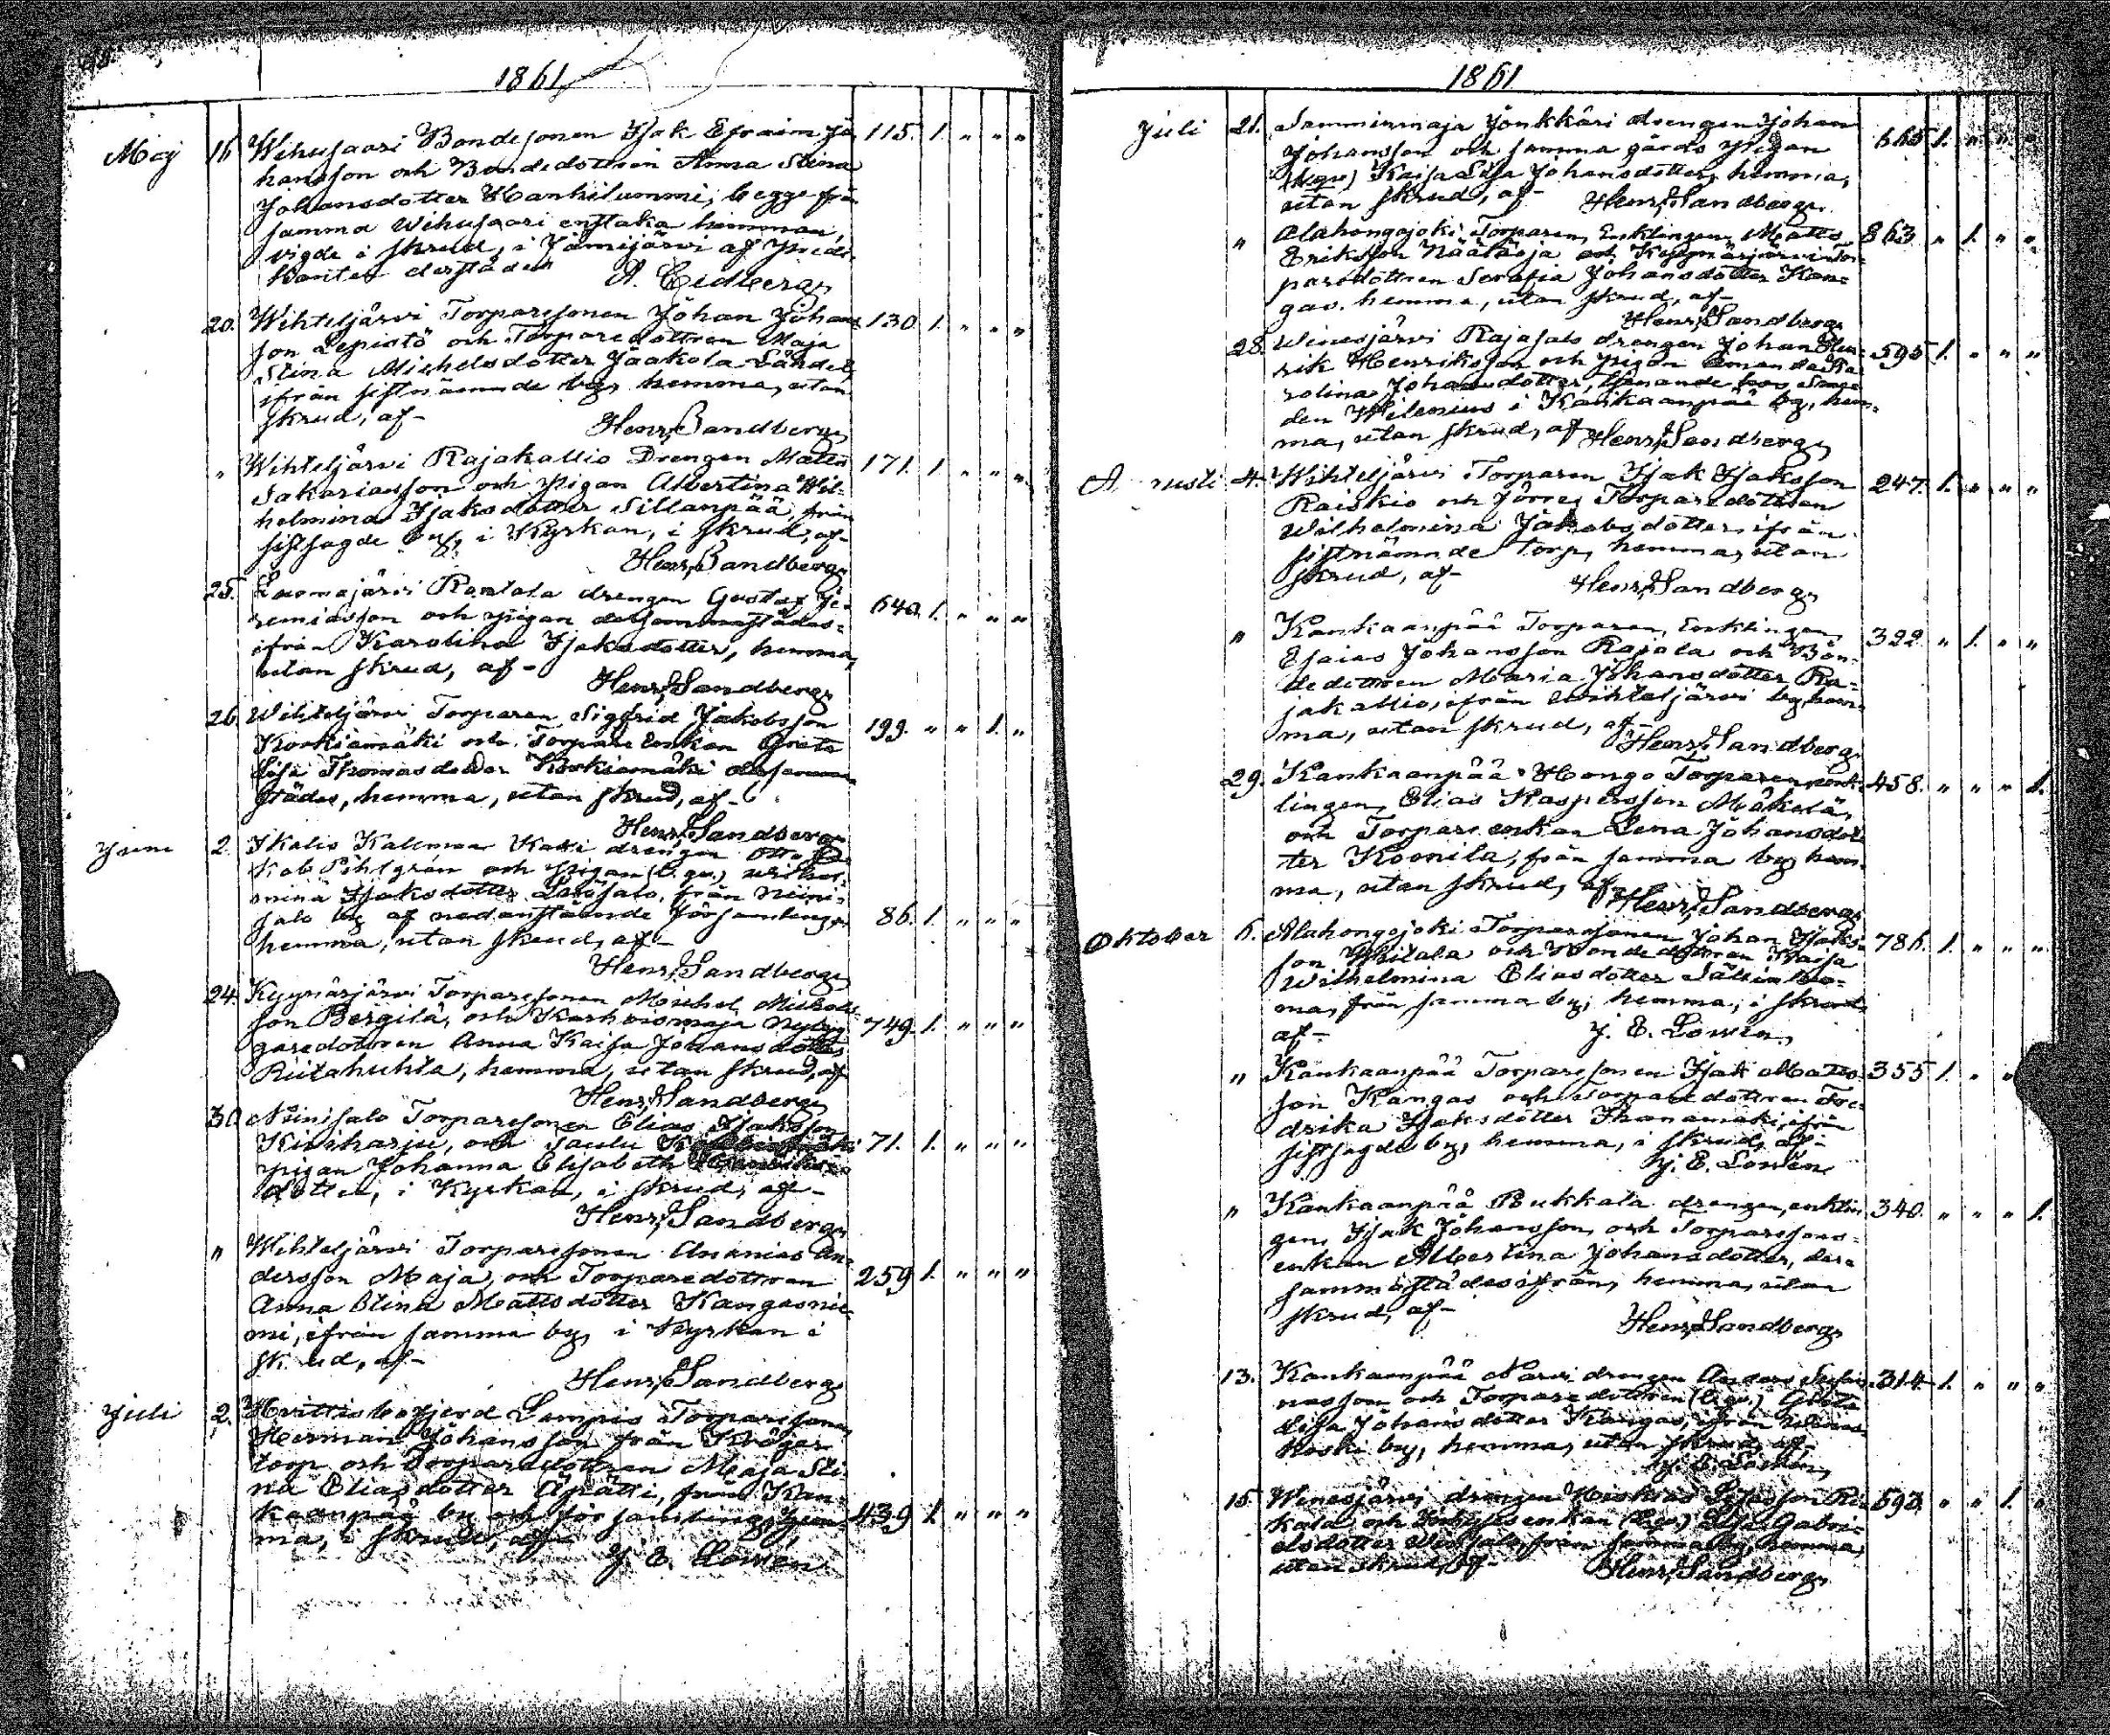 1861
Maj 16. Wihusaari Bondesonen Isak Efraim Jo- 115. 1. " " "
hansson och Bondedottren Anna Stina
Johansdotter Hanhilummi, begge från
samma Wihusaari enstaka hemman,
vigde i skrud, i Jämijärvi af Predi-
kanten derstädes A. Eidberg
20. Wihteljärvi Torparesonen Johan Johans- 130. 1. " " "
son Lepistö och Torparedottren Maja
Stina Michelsdotter Jaakola
ifrån sistnämnde by, hemma, utan
skrud, af- Henr. Sandberg
" Wihteljärvi Rajakallio Drengen Matts 171. 1. " " "
Sakariasson och pigan Albertina Wil-
helmina Isaksdotter Sillanpää, från
sistsagde by, i Kyrkan, i skrud, af-
Henr. Sandberg
25. Luomajärvi Rantala drengen Gustaf Je- 640. 1. " " "
remiasson och pigan dersammastädes-
ifrån Karolina Isaksdotter, hemma,
utan skrud, af- Henr. Sandberg
26. Wihteljärvi Torparen Sigfrid Jakobsson 199. " " 1. "
Korkiamäki och Torpare Enkan Greta
Lisa Thomasdotter Korkiamäki dersamma
städes, hemma, utan skrud, af-
Henr. Sandberg
Juni 2. Ikalis Kallmaa drengen Otto Ja-
kob Pihlgrén och Pigan (b.qv.) Wilhel-
mina Isaksdotter från Niini-
salo by af nedanstående församling, 86. 1. " " "
hemma, utan skrud, af-
Henr. Sandberg
24. Kyynärjärvi Torparesonen Michel Michels-
son Bergilä, och Karhoismaja Nybyg- 749. 1. " " "
garedottren Anna Kaisa Johansdotter
Riitahuhta, hemma, utan skrud, af
Henr. Sandberg
30. Niinisalo Torparesonen Elias Isaksson
Kiviharju, och 71. 1. " " "
pigan Johanna Elisabeth
dotter, i Kyrkan, i skrud, af-
Henr. Sandberg
" Wihteljärvi Torparesonen Ananias An-
dersson Maja, och Torparedottren 259 1. " " "
Anna Stina Mattsdotter Kangasnie-
mi, ifrån samma by, i Kyrkan i
skrud, af-
Henr. Sandberg
Juli 2. Hvittisbofjerd Lampis Torparesonen
Herman Johansson från
torp och Torparedottren Maja Sti-
na Eliasdotter Äpätti, från Kan-
kaanpää by och församling, hem- 439 1. " " "
ma, i skrud, af-
J. E. Lowén
1861
Juli 21. Samminmaja Jönkkäri drengen Johan 665 1. " " "
Johansson och samma gårds Pigan
(b.qv.) Kaisa Lisa Johansdotter, hemma,
utan skrud, af- Henr. Sandberg
" Alahongojoki Torparen, Enklingen Matts 863 " 1. " "
Eriksson Näätäoja och Kyynärjärvi Tor-
paredottren Serafia Johansdotter Kan-
gas, hemma, utan skrud, af-
Henr. Sandberg
28. Winesjärvi Rajasalo drengen Johan Hen- 595 1. " " "
rik Henriksson och Pigan Amanda Ka-
rolina Johansdotter, tjenande hos
den Hilenius i Kankaanpää by, hem-
ma, utan skrud, af Henr. Sandberg
4. Wihteljärvi Torparen Isak Isaksson 247. 1. " " "
Raiskio och Torparedottren
Wilhelmina Jakobsdotter, ifrån
sistnämnde torp, hemma, utan
skrud, af- Henr. Sandberg
" Kankaanpää Torparen, Enklingen 322 " 1. " "
Esaias Johansson Rajala och Bon-
dedottren Maria Johansdotter Ra-
jakallio, ifrån Wihteljärvi by, hem-
ma, utan skrud, af-
Henr. Sandberg
29. Kankaanpää Hongo Torparen, enk- 458. " " " 1.
lingen, Elias Kaspersson Mäkelä,
och Torpare enkan Lena Johansdot-
ter Koonila, från samma by, hem-
ma, utan skrud, af-
Henr. Sandberg
Oktober 6. Alahongojoki Torparesonen Johan Isaks- 786. 1. " " "
son Ylitalo och Bondedottren Kaisa
Wilhelmina Eliasdotter
från samma by, hemma, i skrud
af- J. E. Lowén
" Kankaanpää Torparesonen Isak Matts- 355 1. "
son Kangas och Torparedottren Fre-
drika Isaksdotter Ihanamäki, ifrån
sistsagde by, hemma, i skrud, af-
J. E. Lowén
" Kankaanpää Pukkala drengen, enklin- 340. " " " 1.
gen, Isak Johansson, och Torparesons-
enkan Albertina Johansdotter, der-
sammastädes ifrån, hemma, utan
skrud, af-
Henr. Sandberg
13. Kankaanpää Narvi drengen Anders 314. 1. " " "
och Torparedottren (b.qv.) Greta
Lisa Johansdotter Kangas, ifrån
koski by, hemma, utan skrud, af-
J. E. Lowén
15. Winesjärvi drengen 593. " " 1. "
kala och enkan (b.qv.) Lisa Gabri-
elsdotter från samma by, hemma,
utan skrud, af- Henr. Sandberg